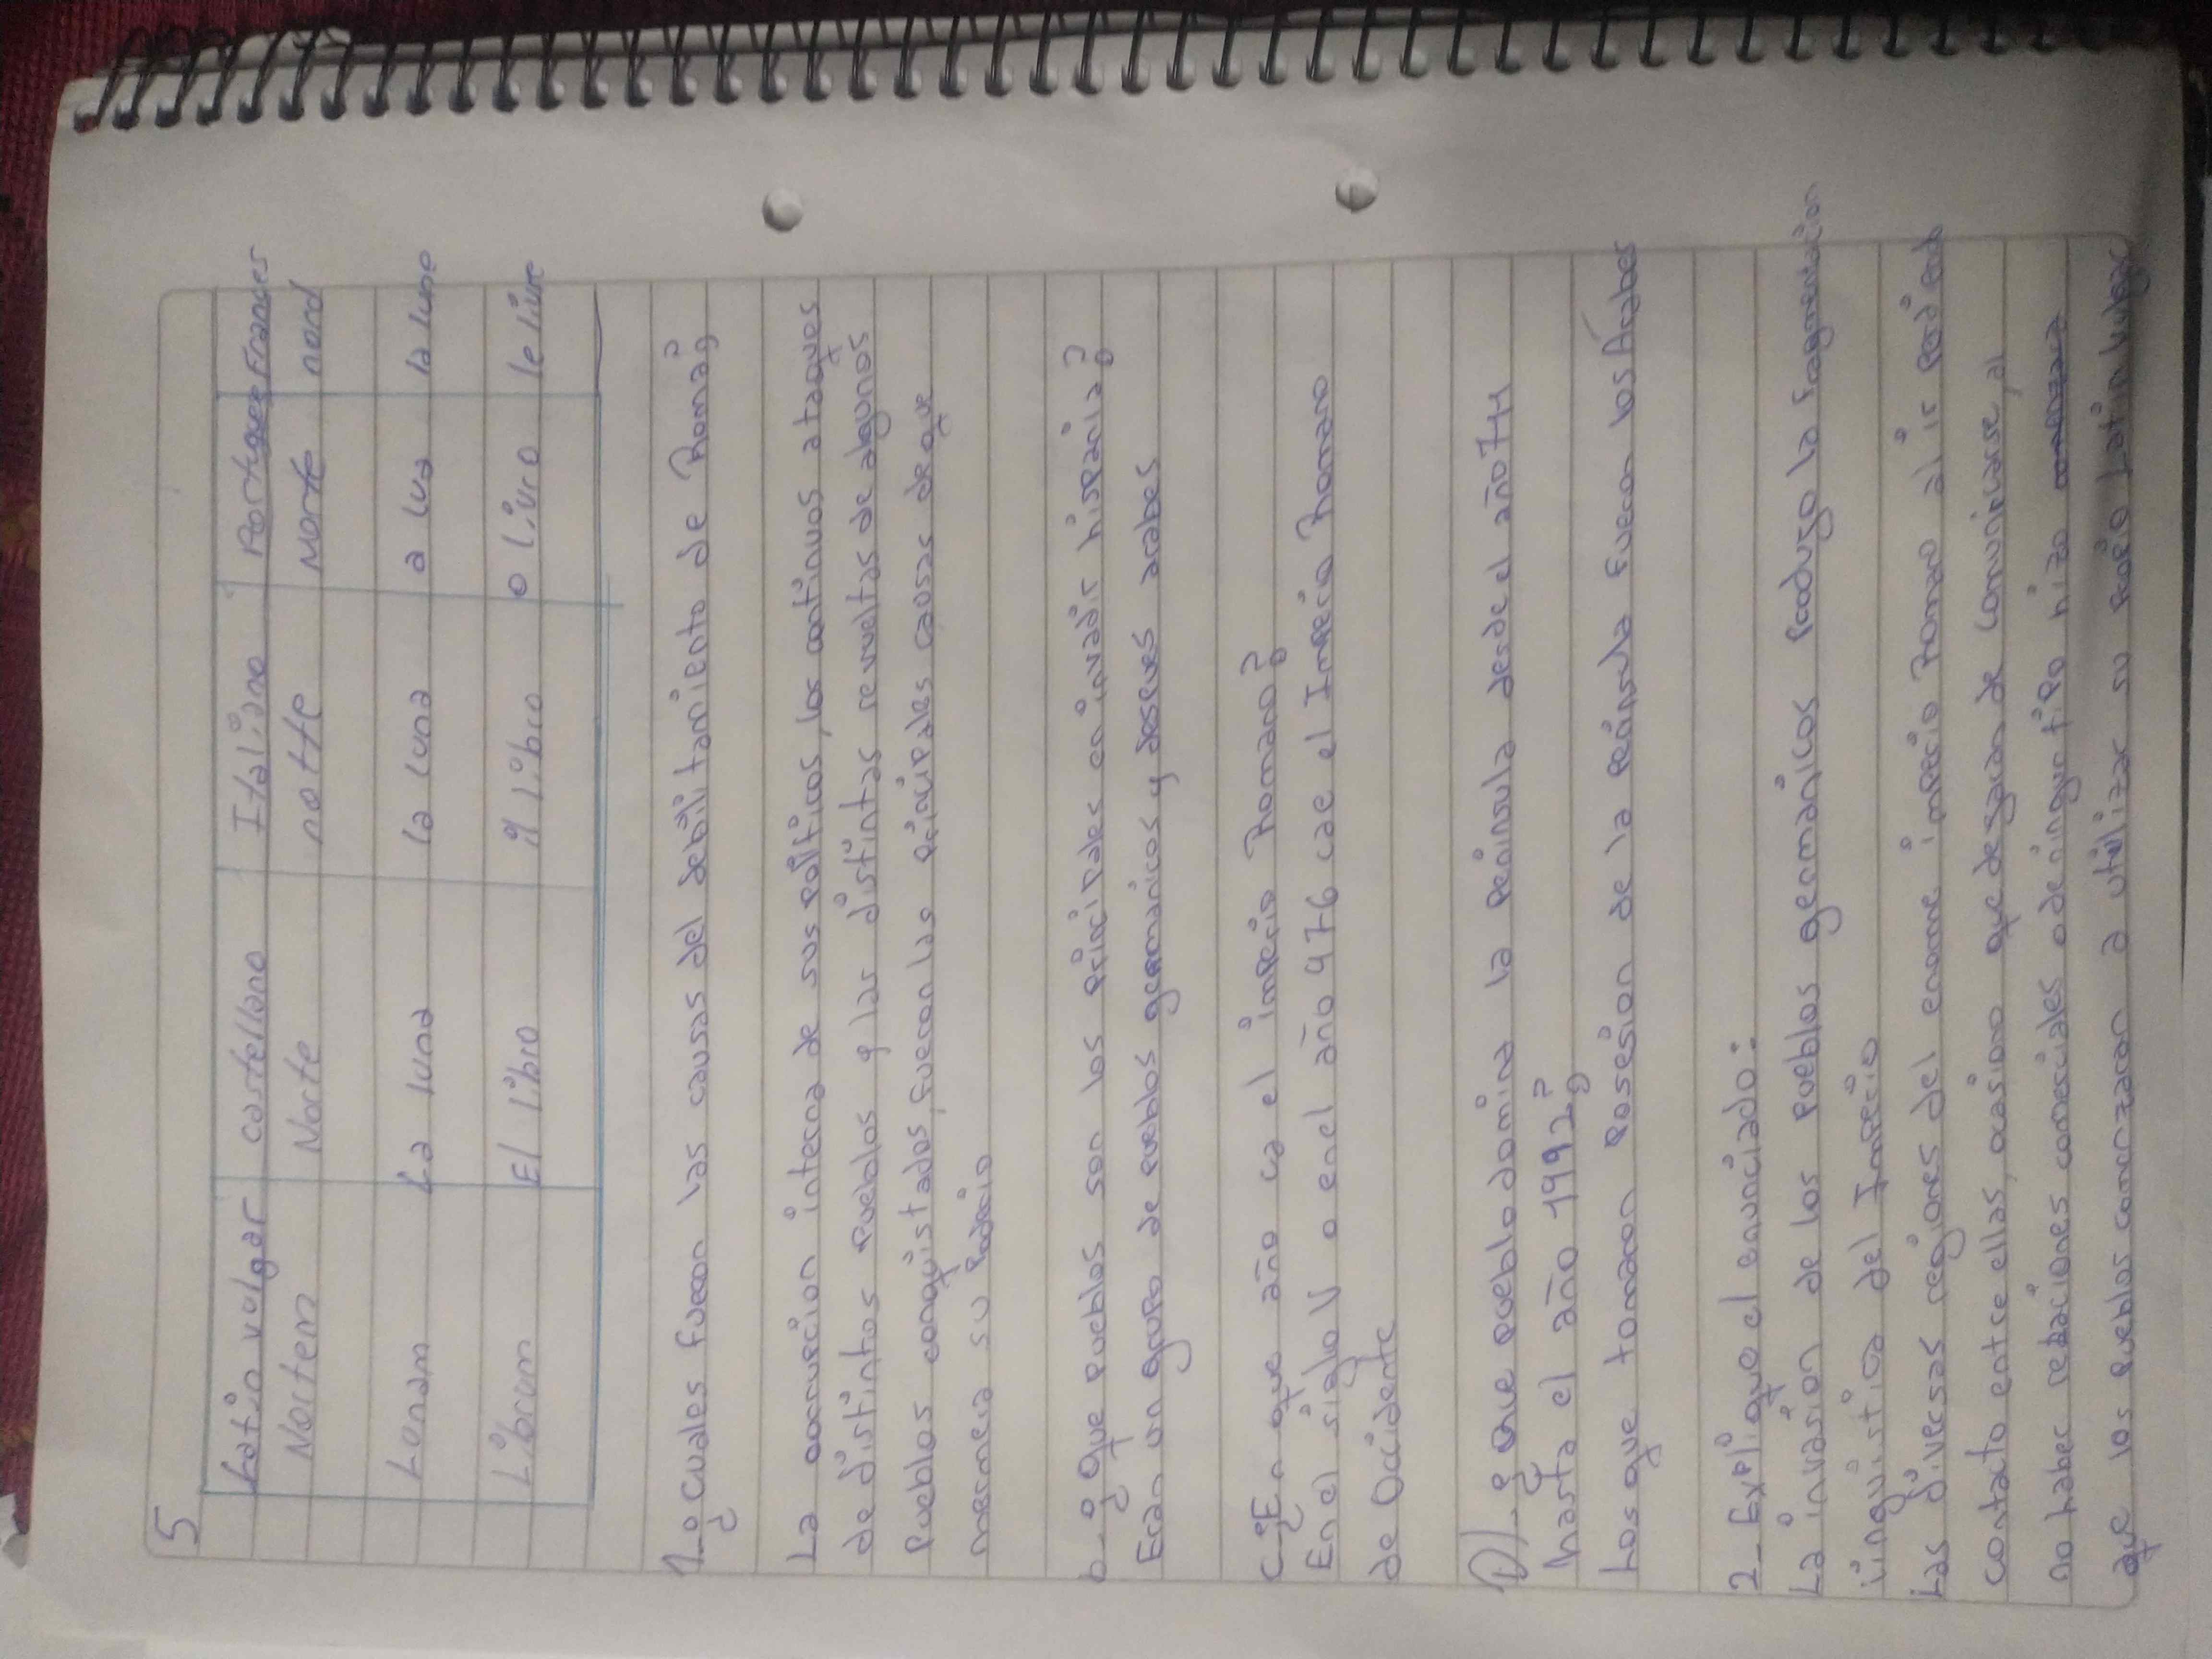 5
Latin vulgar castellano Italiano Portugues Frances
Nortem Norte notte Norte nord
Lunam La luna la luna a lua la lune
Librum El libro il libro o livro le livre
1-¿Cuales fueron las causas del debilitamiento de Roma?
La corrupcion interna de sus politicos, los continuos ataques
de distintos pueblos y las distintas revueltas de algunos
Pueblos conquistados, fueron las principales causas de que
mermera su poderio
b-¿Que pueblos son los principales en invadir hispania?
Eran un grupo de pueblos germanicos y despues arabes
C-¿En que año ca el imperio Romano?
En el siglo V o en el año 476 cae el Imperio Romano
de Occidente
D)-¿Que pueblo domina la peninsula desde el año 711
hasta el año 1992?
Los que tomaron posesion de la peninsula fueron los Árabes
2- Explique el enunciado:
La invasion de los pueblos germanicos produzo la fragmentacion
linguistica del Imperio
Las diversas regiones del enorme imperio Romano al ir perdiendo
contacto entre ellas, ocasiono que dejaran de comunicarse, al
no haber relaciones comerciales o de ningun tipo hizo
que los pueblos comenzaron a utilizar su propio Latin vulgar